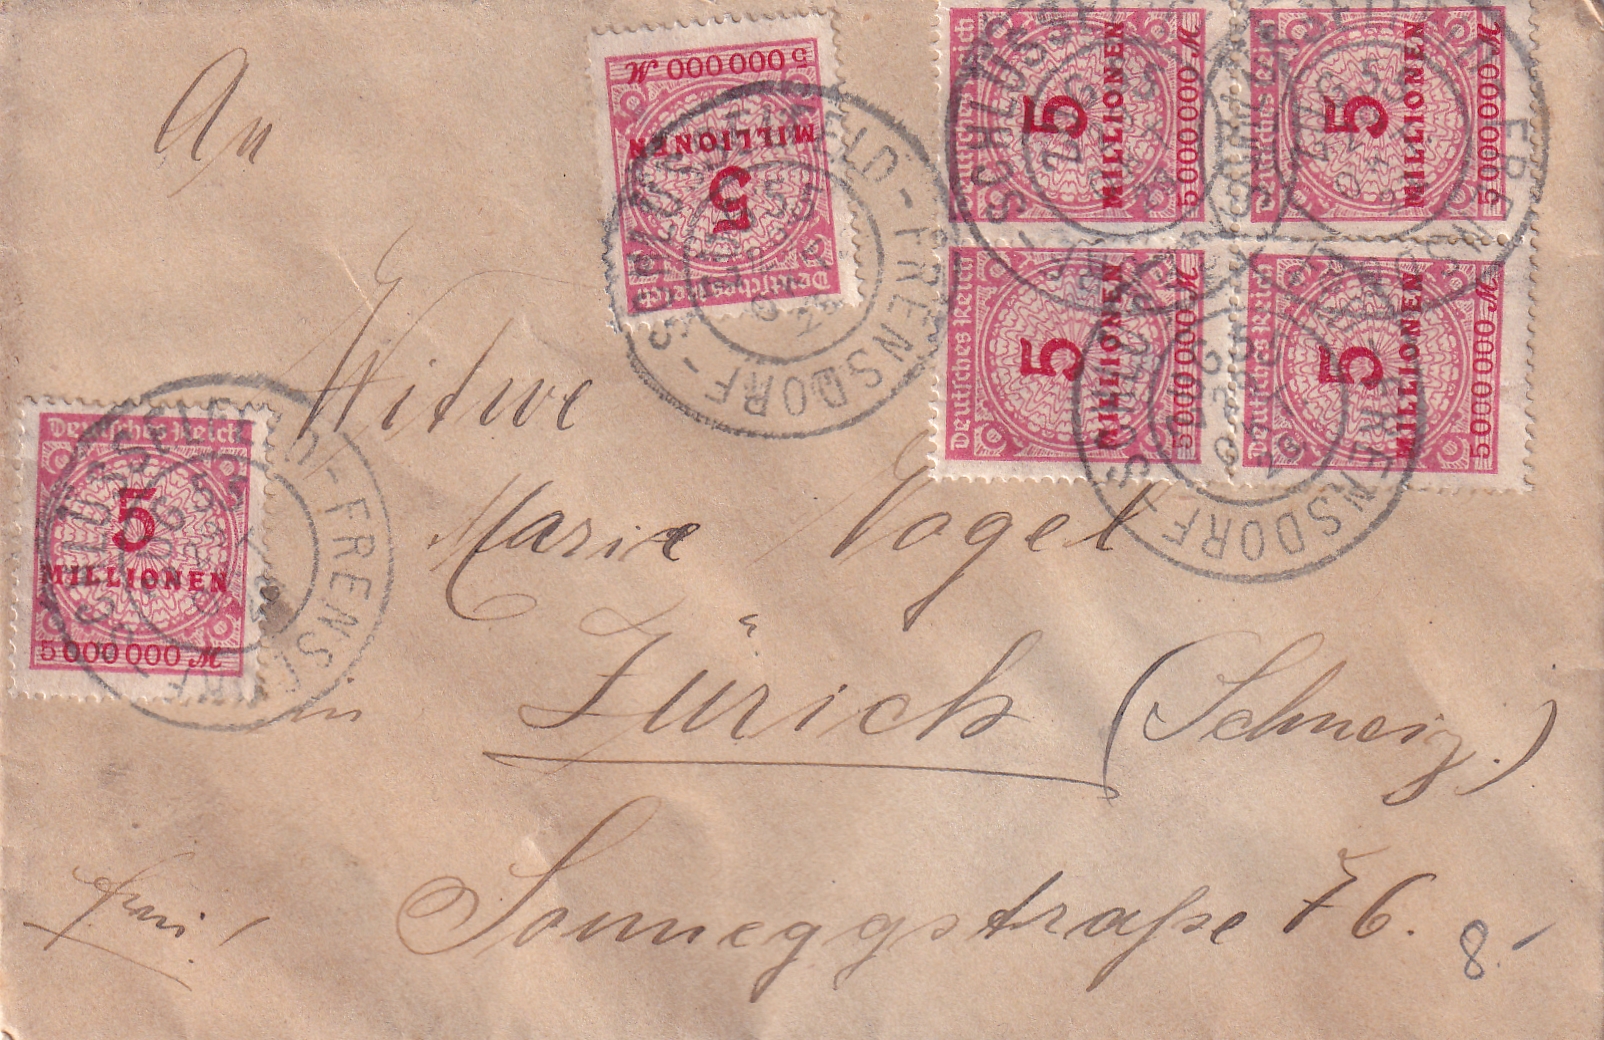 An
Witwe
Marie Vogel
in Zürich (Schweiz.)
Sonneggstraße 76.
frei!
8.-
5 000 000 M
MILLIONEN
5
Deutsches Reich
Deutsches Reich
5
MILLIONEN
5 000 000 M
Deutsches Reich
5
MILLIONEN
5 000 000 M
Deutsches Reich
5
MILLIONEN
5 000 000 M
Deutsches Reich
5
MILLIONEN
5 000 000 M
Deutsches Reich
5
MILLIONEN
5 000 000 M
SCHLÜSSELFELD-FRENSDORF
SCHLÜSSELFELD-FRENSDORF
SCHLÜSSELFELD-FRENSDORF